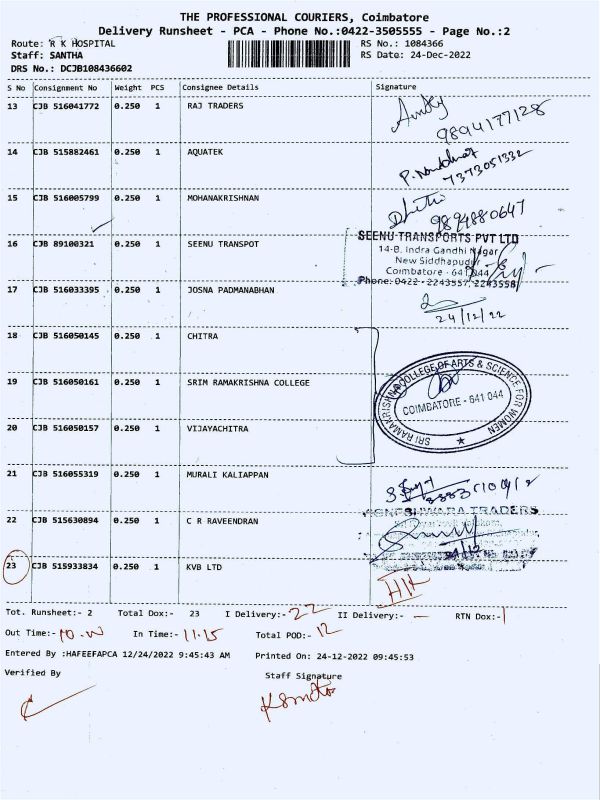 THE PROFESSIONAL COURIERS, Coimbatore
Delivery Runsheet - PCA - Phone No.:0422-3505555 - Page No.:2
Route: R K HOSPITAL
RS No.: 1084366
Staff: SANTHA
RS Date: 24-Dec-2022
DRS No.: DCJB108436602
S No Consignment No Weight PCS Consignee Details Signature
13 CJB 516041772 0.250 1 RAJ TRADERS
9894177128
14 CJB 515882461 0.250 1 AQUATEK
7373051332
15 CJB 516005799 0.250 1 MOHANAKRISHNAN
9894880647
16 CJB 89100321 0.250 1 SEENU TRANSPOT
SEENU TRANSPORTS PVT LTD
14-B, Indra Gandhi Nagar
New Siddhapudur
Coimbatore - 641 044
Phone: 0422 - 2243557, 2243558
17 CJB 516033395 0.250 1 JOSNA PADMANABHAN
24/12/22
18 CJB 516050145 0.250 1 CHITRA
19 CJB 516050161 0.250 1 SRIM RAMAKRISHNA COLLEGE
SRI RAMAKRISHNA COLLEGE OF ARTS & SCIENCE FOR WOMEN
COIMBATORE - 641 044
20 CJB 516050157 0.250 1 VIJAYACHITRA
21 CJB 516055319 0.250 1 MURALI KALIAPPAN
22 CJB 515630894 0.250 1 C R RAVEENDRAN
TRADERS
23 CJB 515933834 0.250 1 KVB LTD
Tot. Runsheet:- 2 Total Dox:- 23 I Delivery:- 22 II Delivery:- — RTN Dox:- 1
Out Time:- 10. In Time:- 11.15 Total POD:- 12
Entered By :HAFEEFAPCA 12/24/2022 9:45:43 AM Printed On: 24-12-2022 09:45:53
Verified By Staff Signature